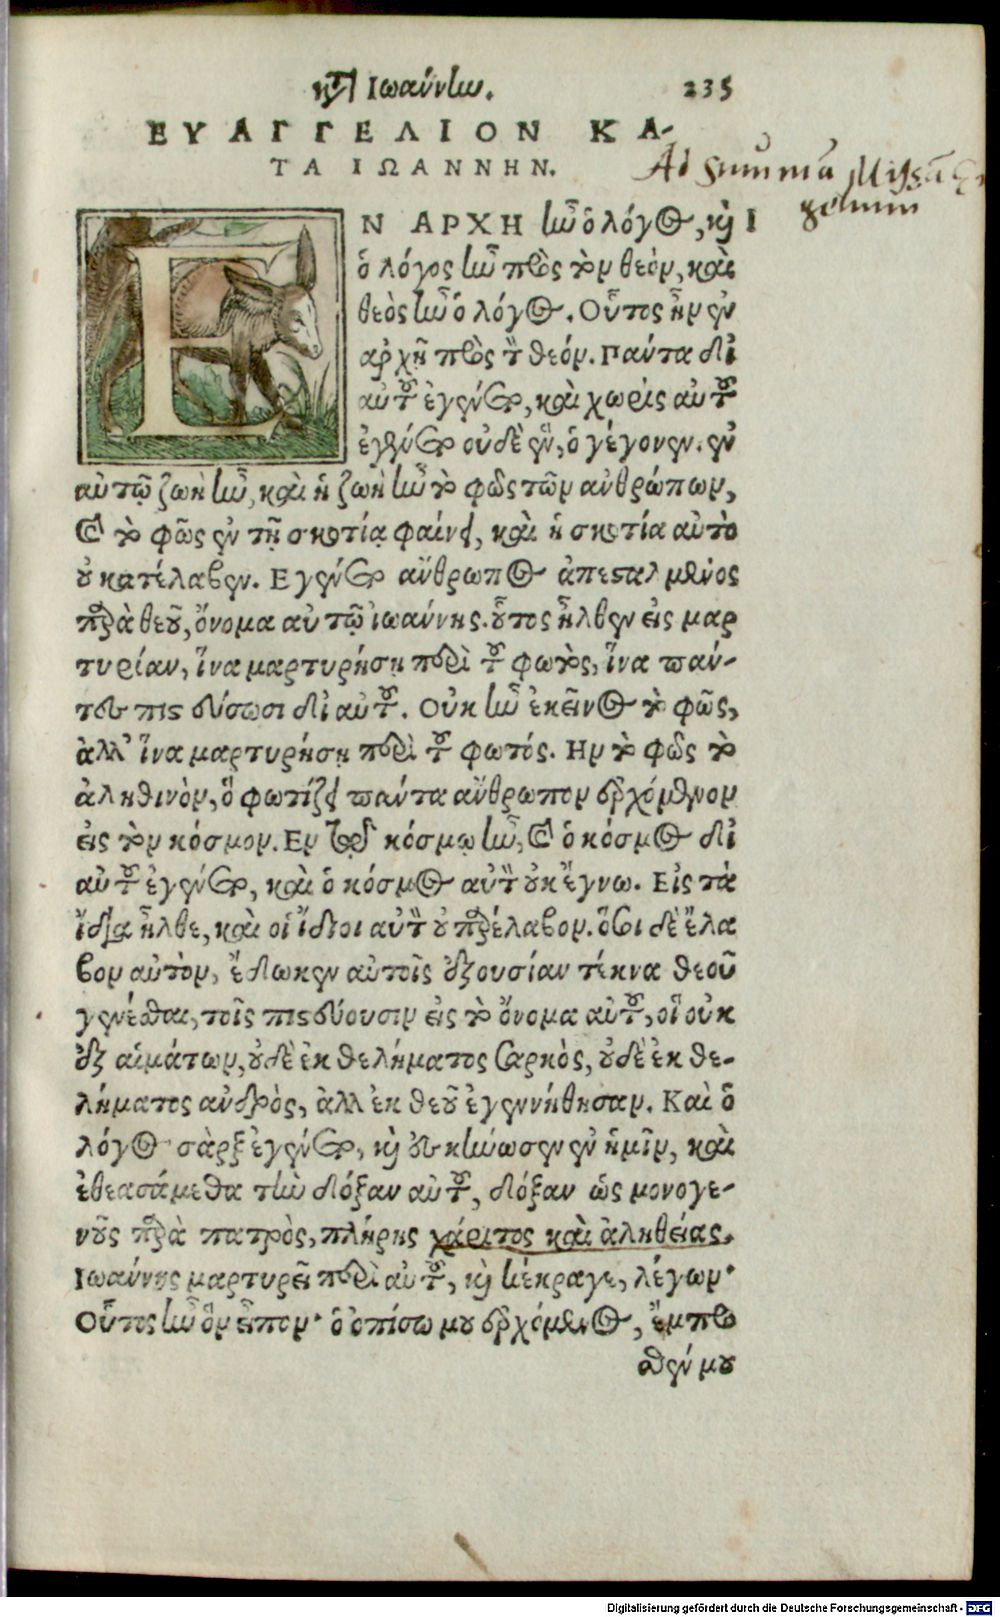 κατὰ Ἰωάννην. 235
ΕΥΑΓΓΕΛΙΟΝ ΚΑ-
ΤΑ ΙΩΑΝΝΗΝ.
Ad summā Missā
ΕΝ ΑΡΧΗ ἦν ὁ λόγος, καὶ I
ὁ λόγος ἦν πρὸς τὸν θεὸν, καὶ
θεὸς ἦν ὁ λόγος. Οὗτος ἦν ἐν
ἀρχῇ πρὸς τὸν θεόν. Πάντα δι
αὐτοῦ ἐγένετο, καὶ χωρὶς αὐτοῦ
ἐγένετο οὐδὲ ἓν, ὃ γέγονεν. ἐν
αὐτῷ ζωὴ ἦν, καὶ ἡ ζωὴ ἦν τὸ φῶς τῶν ἀνθρώπων,
καὶ τὸ φῶς ἐν τῇ σκοτίᾳ φαίνει, καὶ ἡ σκοτία αὐτὸ
οὐ κατέλαβεν. Εγένετο ἄνθρωπος ἀπεσταλμένος
παρὰ θεοῦ, ὄνομα αὐτῷ ἰωάννης. οὗτος ἦλθεν εἰς μαρ
τυρίαν, ἵνα μαρτυρήσῃ περὶ τοῦ φωτὸς, ἵνα πάν-
τες πιστεύσωσι δι αὐτοῦ. Οὐκ ἦν ἐκεῖνος τὸ φῶς,
ἀλλ' ἵνα μαρτυρήσῃ περὶ τοῦ φωτός. Ην τὸ φῶς τὸ
ἀληθινὸν, ὃ φωτίζει πάντα ἄνθρωπον ἐρχόμενον
εἰς τὸν κόσμον. Εν τῷ κόσμῳ ἦν, καὶ ὁ κόσμος δι
αὐτοῦ ἐγένετο, καὶ ὁ κόσμος αὐτὸν οὐκ ἔγνω. Εἰς τὰ
ἴδια ἦλθε, καὶ οἱ ἴδιοι αὐτὸν οὐ παρέλαβον. ὅσοι δὲ ἔλα
βον αὐτὸν, ἔδωκεν αὐτοῖς ἐξουσίαν τέκνα θεοῦ
γενέσθαι, τοῖς πιστεύουσιν εἰς τὸ ὄνομα αὐτοῦ, οἳ οὐκ
ἐξ αἱμάτων, οὐδὲ ἐκ θελήματος σαρκὸς, οὐδὲ ἐκ θε-
λήματος ἀνδρὸς, ἀλλ ἐκ θεοῦ ἐγεννήθησαν. Καὶ ὁ
λόγος σὰρξ ἐγένετο, καὶ ἐσκήνωσεν ἐν ἡμῖν, καὶ
ἐθεασάμεθα τὴν δόξαν αὐτοῦ, δόξαν ὡς μονογε-
νοῦς παρὰ πατρὸς, πλήρης χάριτος καὶ ἀληθείας.
Ιωάννης μαρτυρεῖ περὶ αὐτοῦ, καὶ κέκραγε, λέγων·
Οὗτος ἦν ὃν εἶπον· ὁ ὀπίσω μου ἐρχόμενος, ἔμπρο
σθέν μου
Digitalisierung gefördert durch die Deutsche Forschungsgemeinschaft - DFG